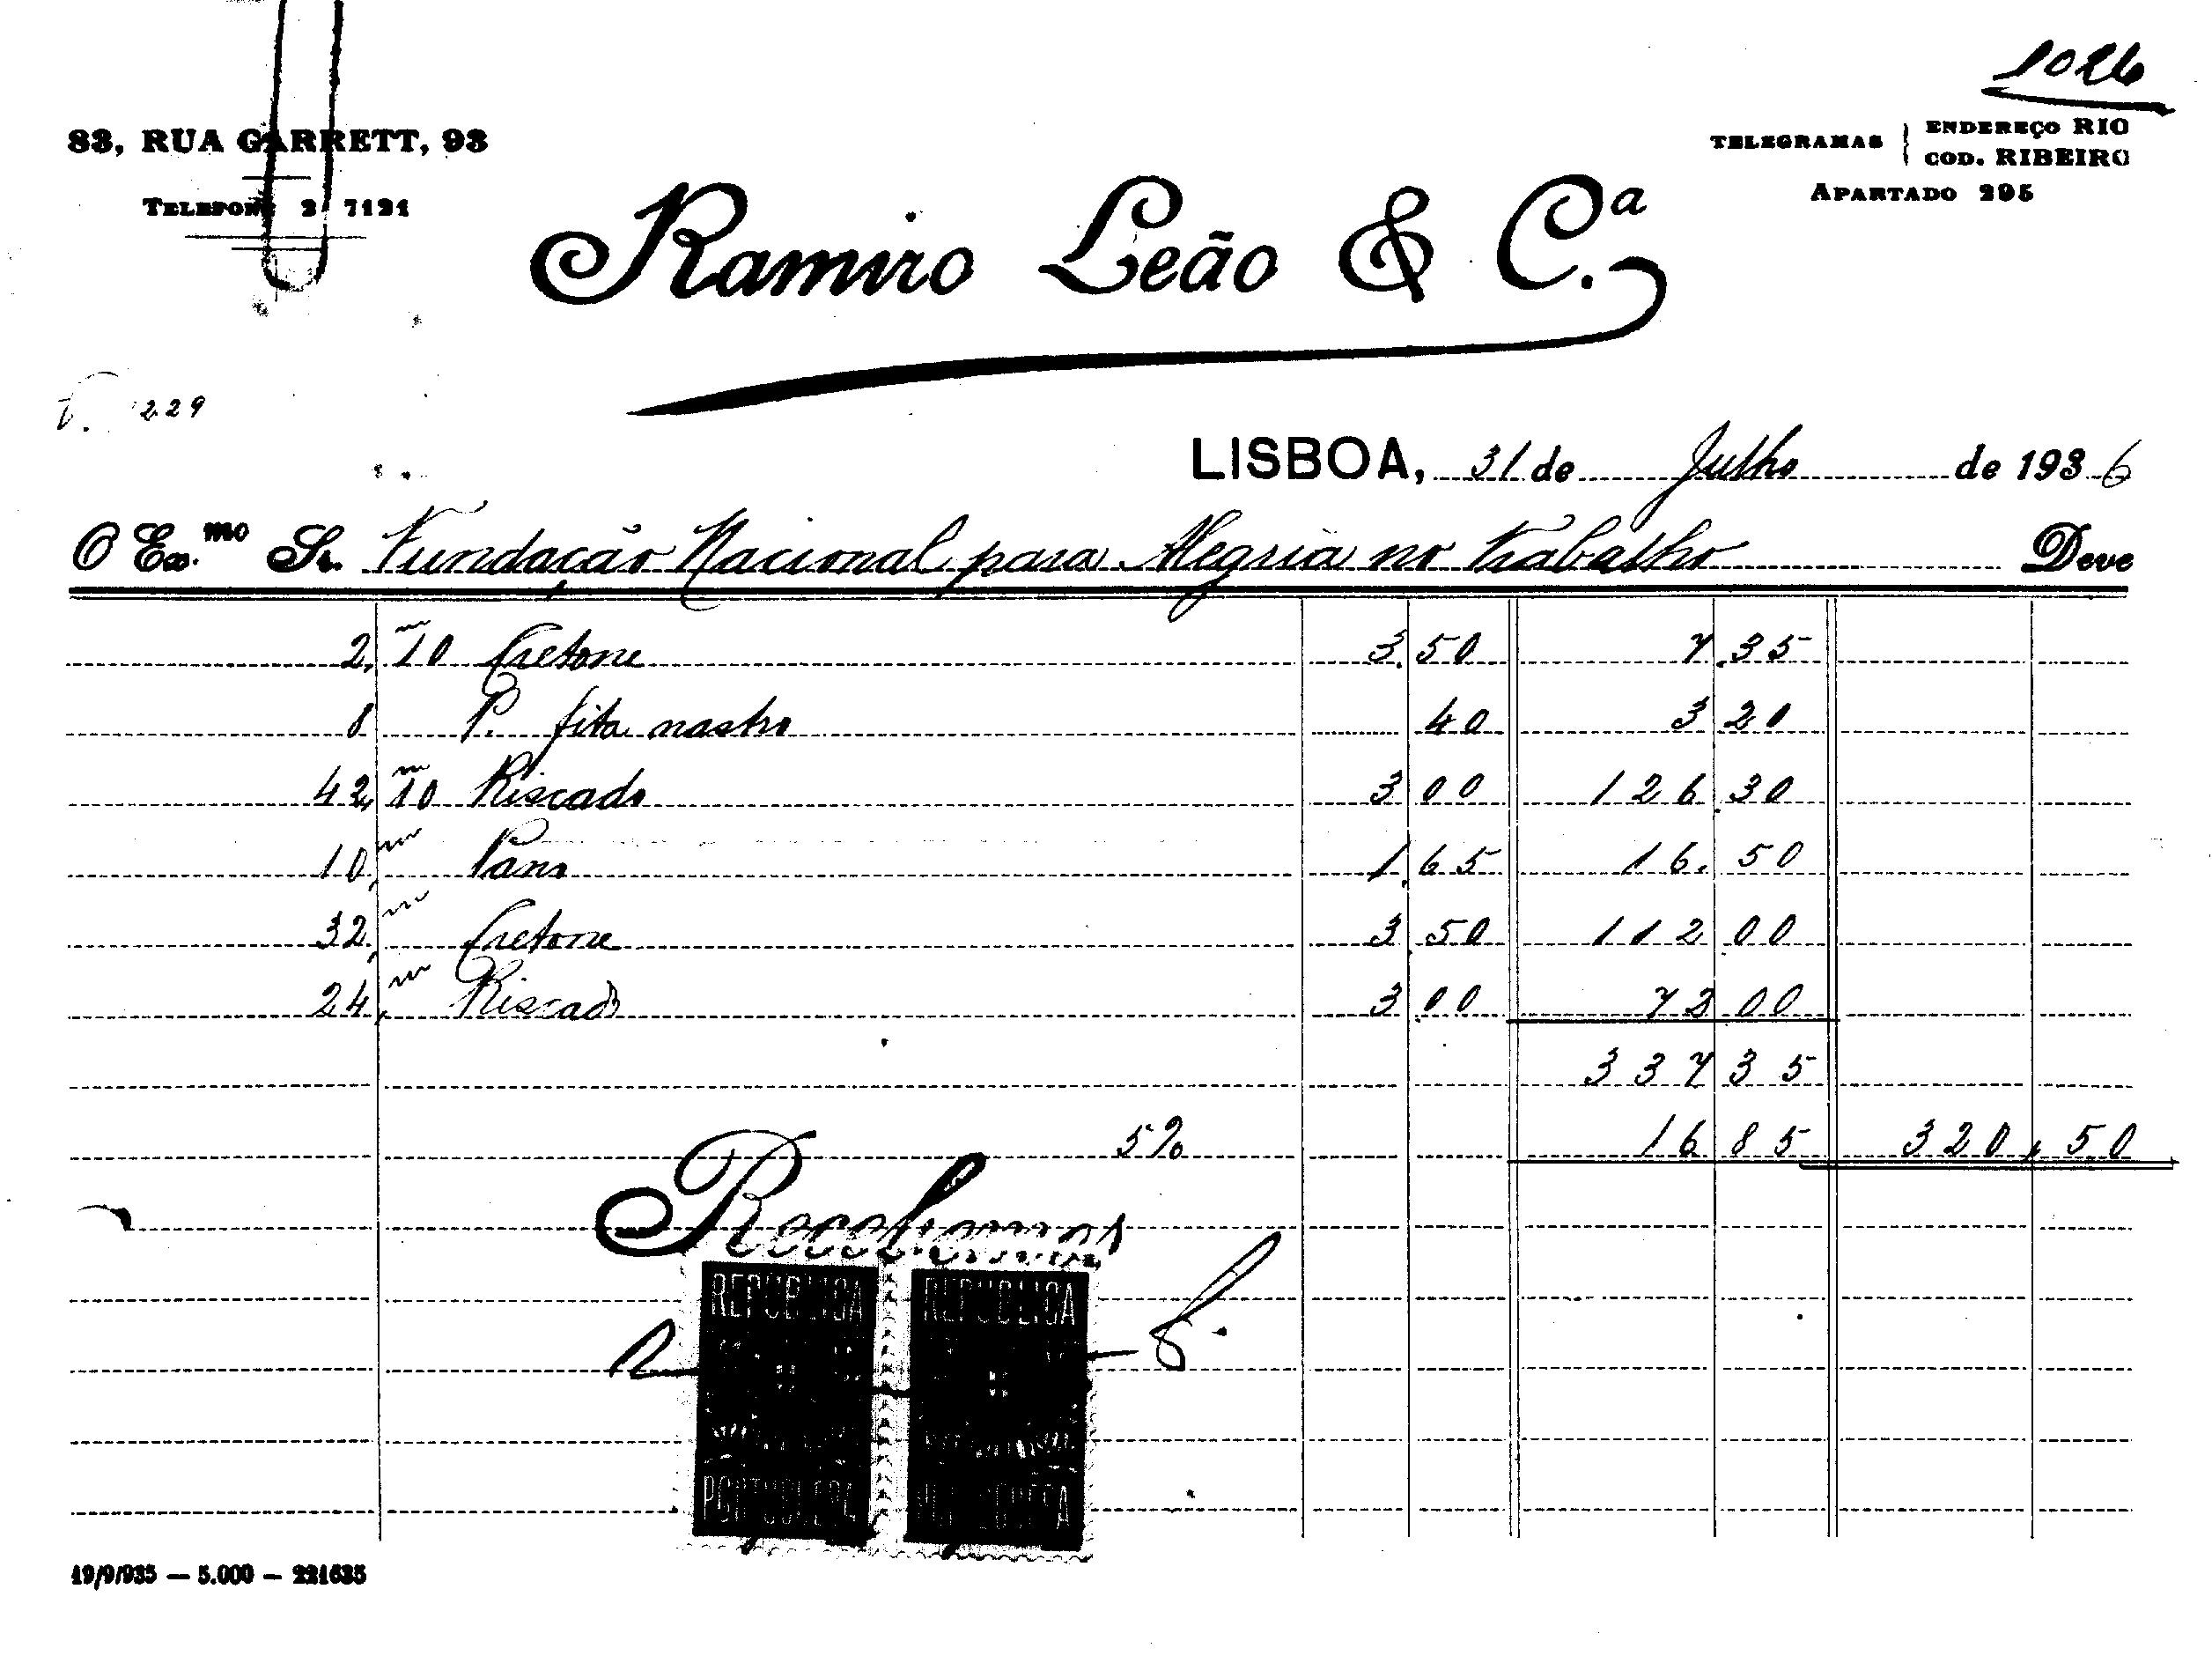 1026
83, RUA GARRETT, 93
TELEFONE 2 7121
TELEGRAMAS ENDEREÇO RIO
COD. RIBEIRO
APARTADO 295
Ramiro Leão & Cª.
229
LISBOA, 31 de Julho de 1936
O Ex.mo Sr. Fundação Nacional para Alegria no Trabalho Deve
2, m10 Cretone 3.50 7.35
8 P. fita nastro 40 3 20
42, m10 Riscado 3 00 126.30
10, m Pano 1.65 16.50
32, m Cretone 3.50 112 00
24, m Riscado 3.00 72 00
337 35
5% 16 85 320,50
Recebemos
REPUBLICA REPUBLICA
PORTUGUESA PORTUGUESA
19/9/935 — 5.000 — 221635